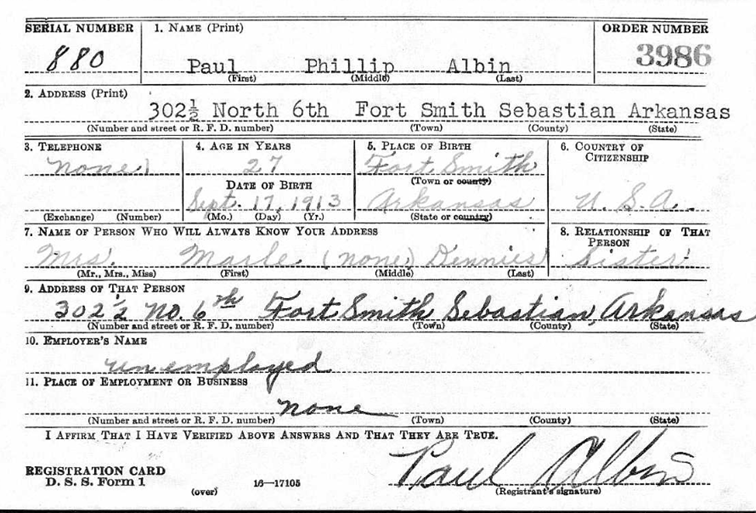 SERIAL NUMBER 1. NAME (Print) ORDER NUMBER
880 Paul Phillip Albin 3986
(First) (Middle) (Last)
2. ADDRESS (Print)
302½ North 6th Fort Smith Sebastian Arkansas
(Number and street or R. F. D. number) (Town) (County) (State)
3. TELEPHONE 4. AGE IN YEARS 5. PLACE OF BIRTH 6. COUNTRY OF CITIZENSHIP
none 27 Fort Smith
(Town or county)
DATE OF BIRTH
Sept. 17, 1913 Arkansas U. S. A.
(Exchange) (Number) (Mo.) (Day) (Yr.) (State or country)
7. NAME OF PERSON WHO WILL ALWAYS KNOW YOUR ADDRESS 8. RELATIONSHIP OF THAT PERSON
Mrs. Marle (none) Dennies Sister
(Mr., Mrs., Miss) (First) (Middle) (Last)
9. ADDRESS OF THAT PERSON
302½ No. 6th Fort Smith Sebastian, Arkansas
(Number and street or R. F. D. number) (Town) (County) (State)
10. EMPLOYER'S NAME
unemployed
11. PLACE OF EMPLOYMENT OR BUSINESS
none
(Number and street or R. F. D. number) (Town) (County) (State)
I AFFIRM THAT I HAVE VERIFIED ABOVE ANSWERS AND THAT THEY ARE TRUE.
Paul Albin
REGISTRATION CARD
D. S. S. Form 1 (over) 16—17105 (Registrant's signature)